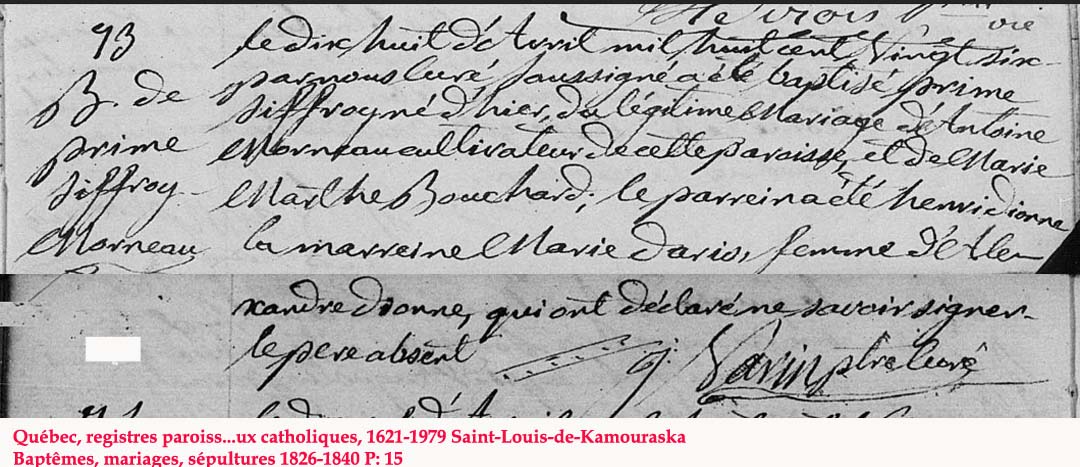 73
B. de
prime
Siffroy
Morneau
le dix huit d'Avril mil, huit cent Vingt six
par nous Curé soussigné a été baptisé prime
Siffroy né d'hier, du légitime Mariage d'Antoine
Morneau cultivateur de cette paroisse, et de Marie
Marthe Bouchard; le parrein a été henri dionne
la marreine Marie daris, femme d'Ale-
xandre dionne, qui ont déclaré ne savoir signer.
le pere absent
J. Varin ptre Curé
Québec, registres paroiss...ux catholiques, 1621-1979 Saint-Louis-de-Kamouraska
Baptêmes, mariages, sépultures 1826-1840 P: 15